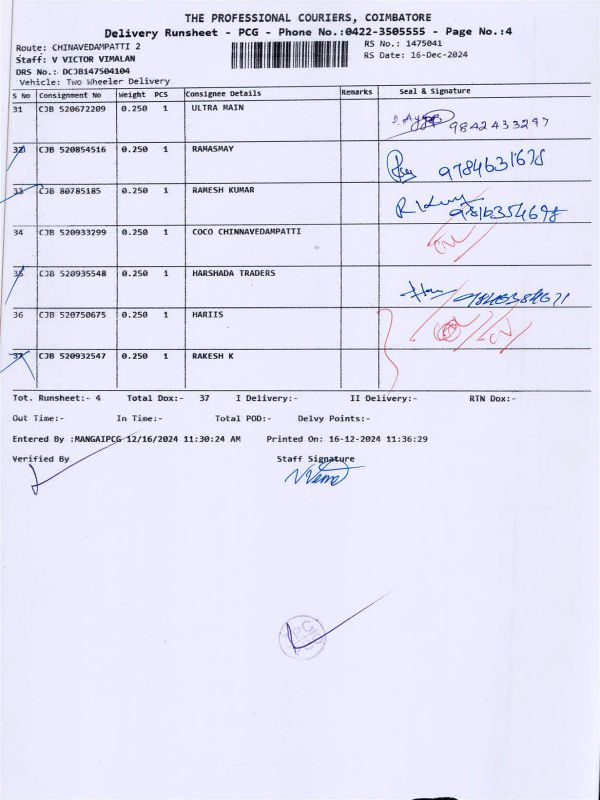 THE PROFESSIONAL COURIERS, COIMBATORE
Delivery Runsheet - PCG - Phone No.:0422-3505555 - Page No.:4
Route: CHINAVEDAMPATTI 2
RS No.: 1475041
Staff: V VICTOR VIMALAN
RS Date: 16-Dec-2024
DRS No.: DCJB147504104
Vehicle: Two Wheeler Delivery
S No Consignment No Weight PCS Consignee Details Remarks Seal & Signature
31 CJB 520672209 0.250 1 ULTRA MAIN
9842433297
32 CJB 520854516 0.250 1 RAMASMAY
9784631678
33 CJB 80785185 0.250 1 RAMESH KUMAR
9816354698
34 CJB 520933299 0.250 1 COCO CHINNAVEDAMPATTI
35 CJB 520935548 0.250 1 HARSHADA TRADERS
36 CJB 520750675 0.250 1 HARIIS
37 CJB 520932547 0.250 1 RAKESH K
Tot. Runsheet:- 4 Total Dox:- 37 I Delivery:- II Delivery:- RTN Dox:-
Out Time:- In Time:- Total POD:- Delvy Points:-
Entered By :MANGAIPCG 12/16/2024 11:30:24 AM Printed On: 16-12-2024 11:36:29
Verified By Staff Signature